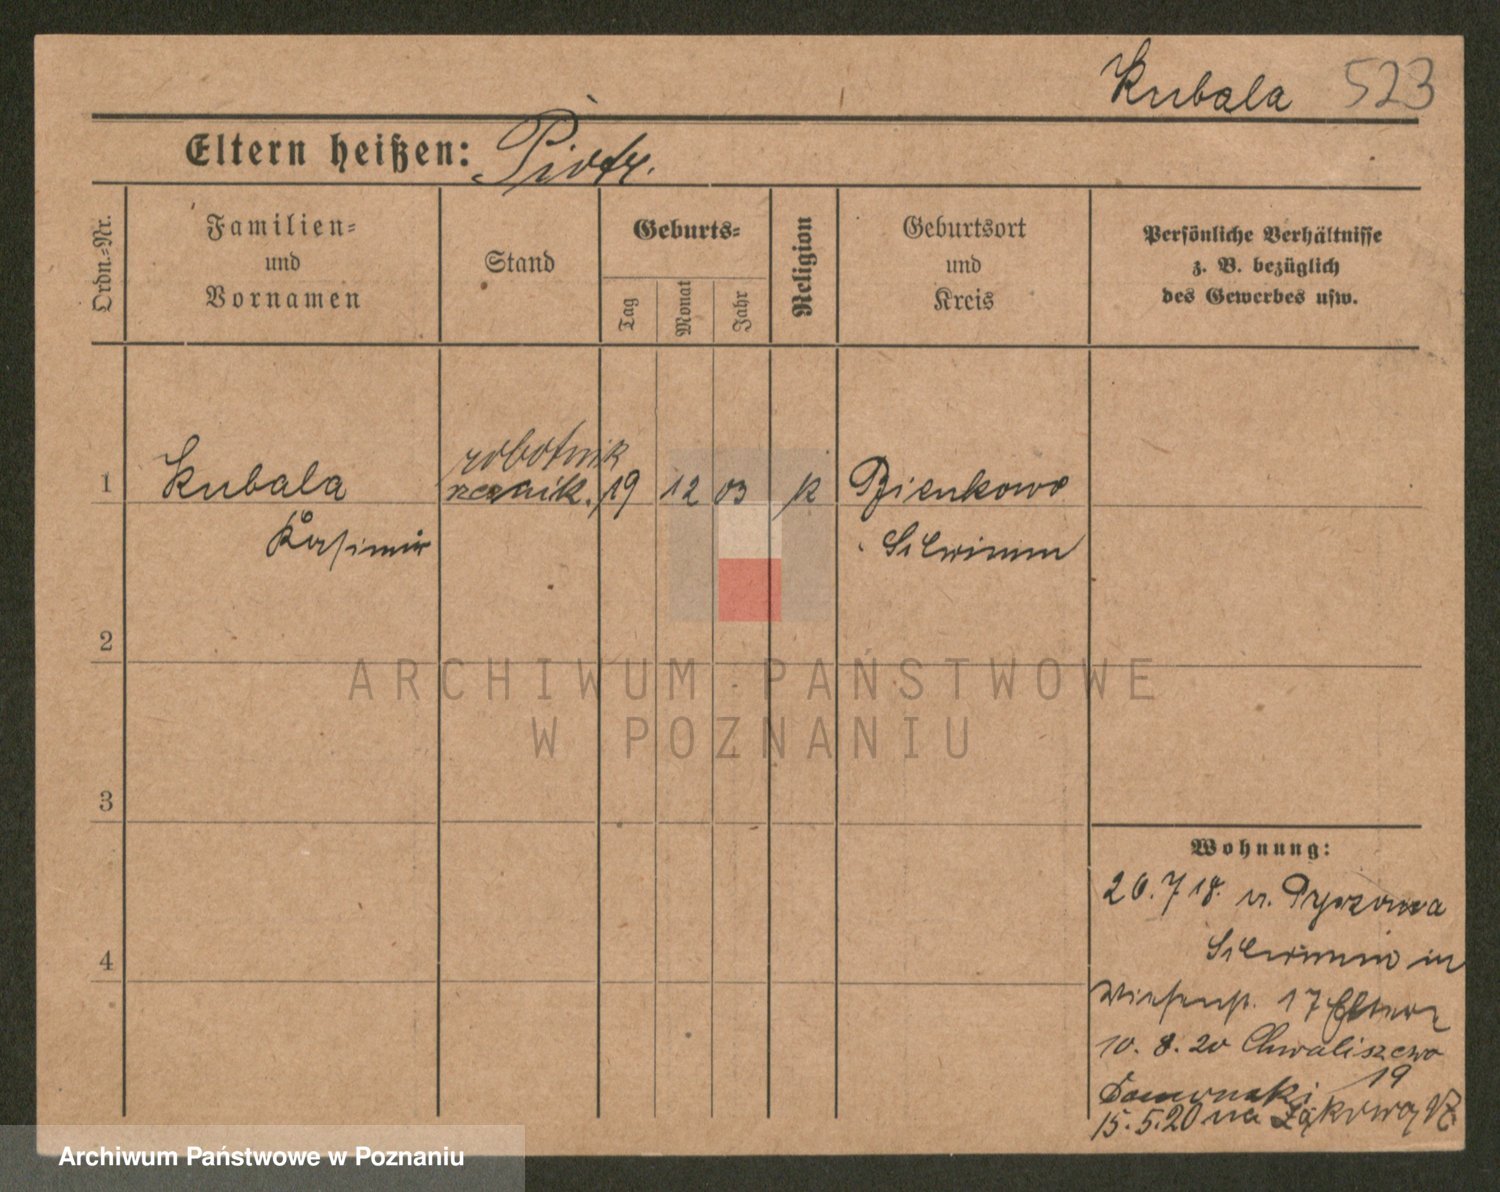 Kubala 523
Eltern heißen: Piotr.
Ordn.-Nr.
Familien-
und
Vornamen
Stand
Geburts-
Tag
Monat
Jahr
Religion
Geburtsort
und
Kreis
Persönliche Verhältnisse
z. B. bezüglich
des Gewerbes usw.
robotnik
1 Kubala 19 12 03 k Bienkowo
Kasimir
2
ARCHIWUM PAŃSTWOWE
W POZNANIU
3
Wohnung:
20. 7 18. v.
4
in
17 Eltern
10. 8. 20 Chwaliszewo
19
15. 5. 20 na Łąkową
Archiwum Państwowe w Poznaniu